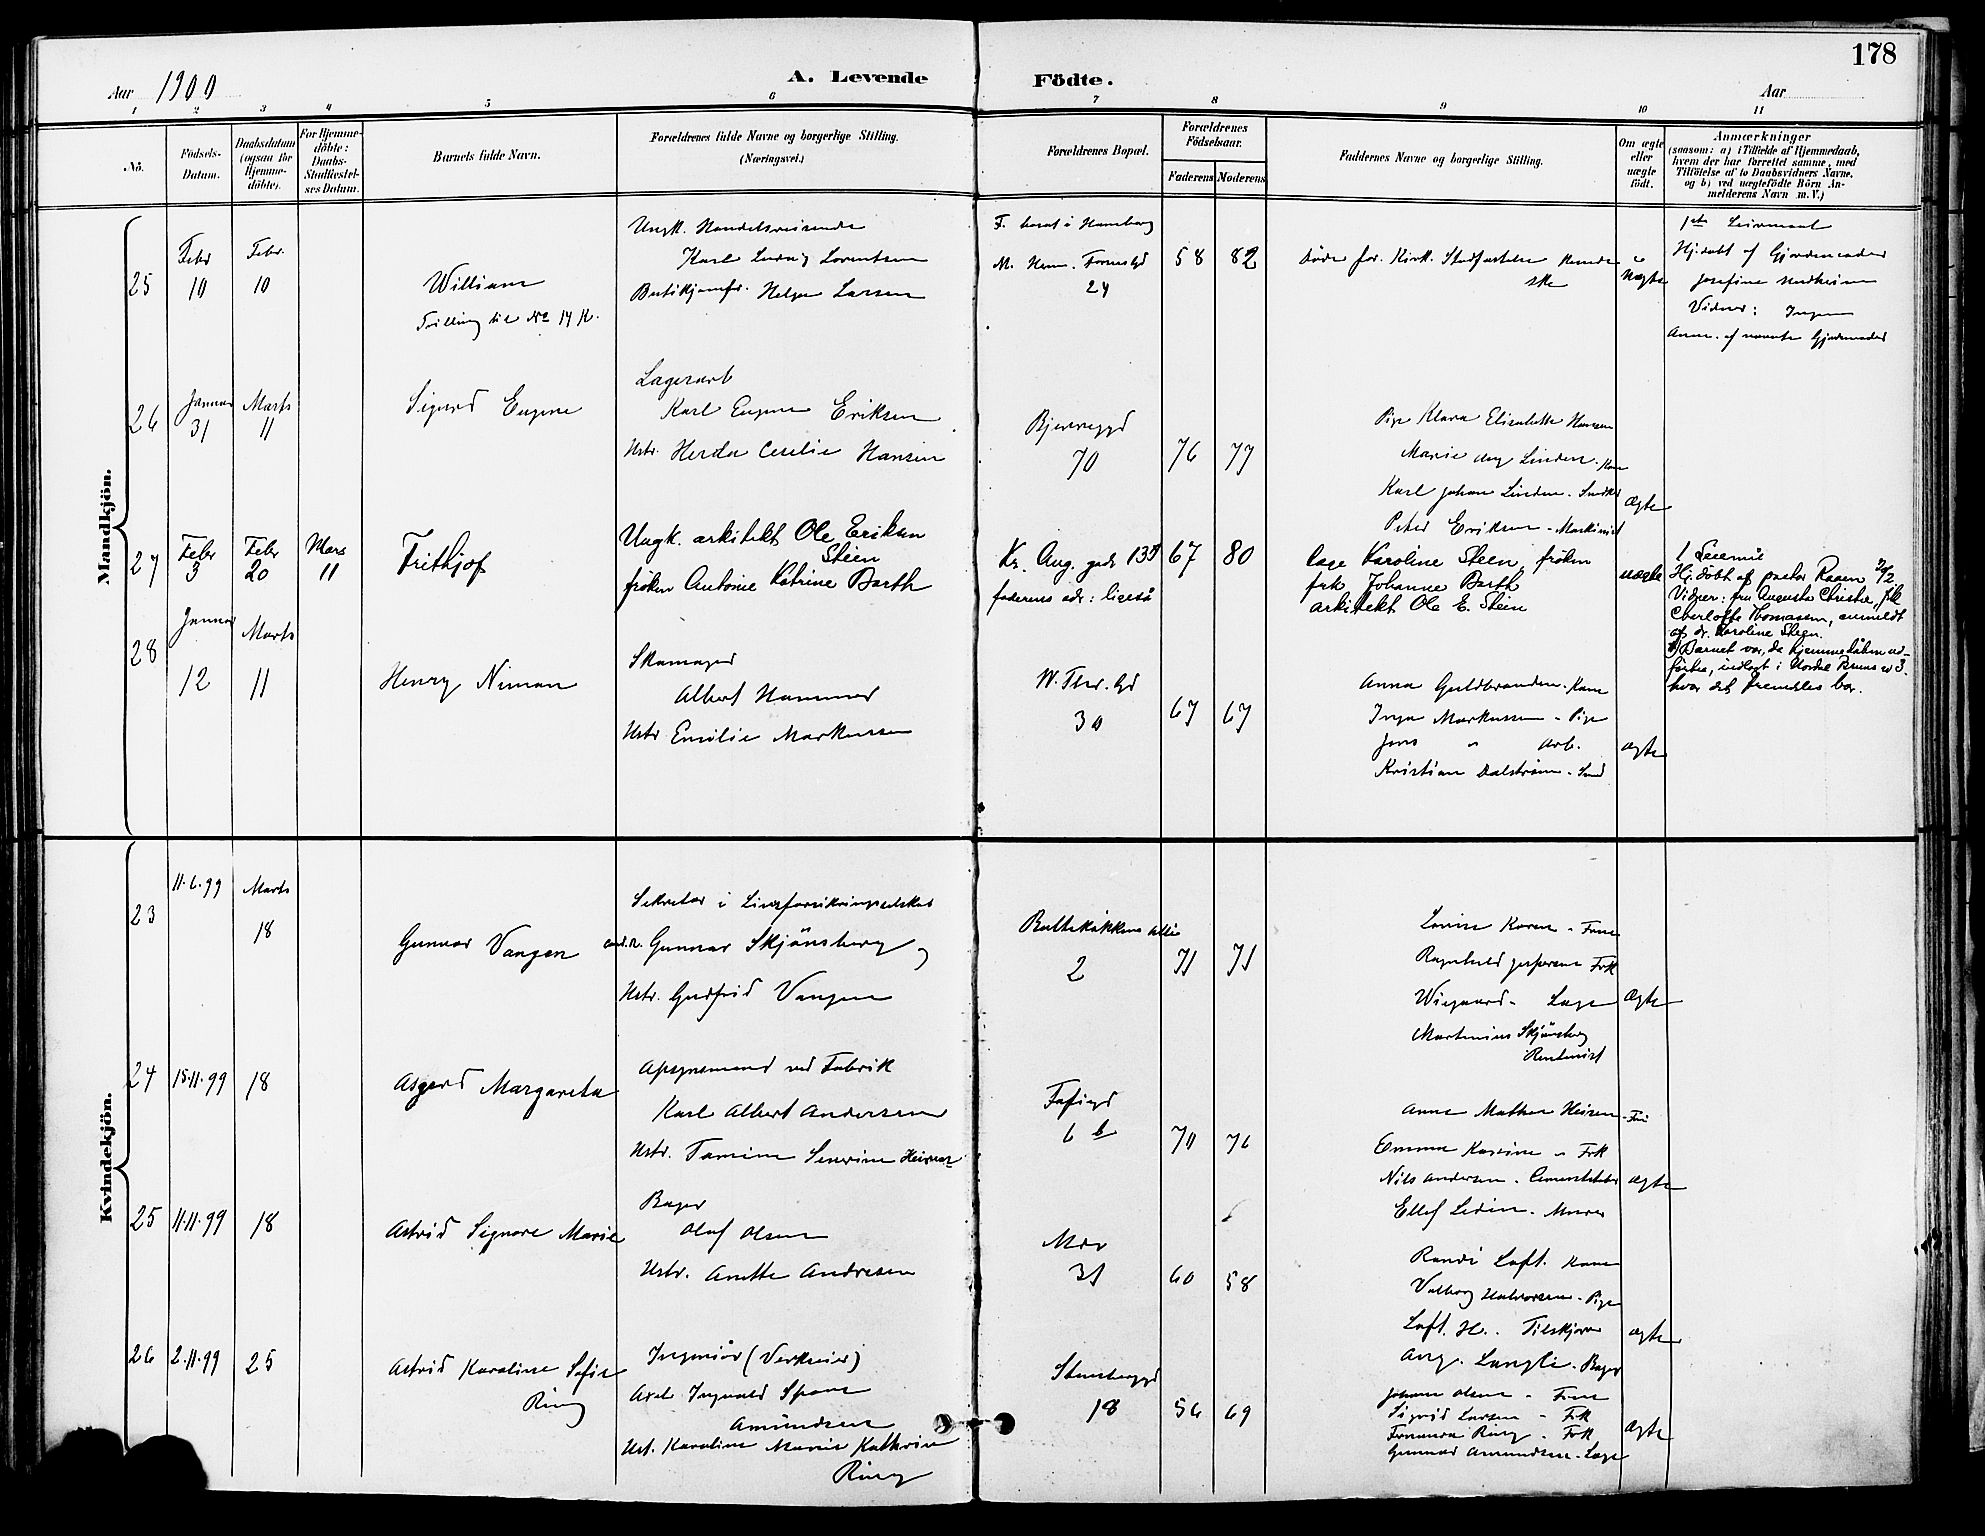 178
Aar 1900
A. Levende Födte.
Aar
1 2 3 4 5 6 7 8 9 10 11
Nô.
Födsels-Datum.
Daabsdatum (ogsaa for Hjemme-döbte).
For Hjemme-döbte: Daabs-Stadfæstel-ses Datum.
Barnets fulde Navn.
Forældrenes fulde Navne og borgerlige Stilling. (Næringsvei.)
Forældrenes Bopæl.
Forældrenes Födselsaar.
Faderens Moderens
Faddernes Navne og borgerlige Stilling.
Om ægte eller uægte födt.
Anmærkninger
(saasom: a) i Tilfælde af Hjemmedaab,
hvem der har forrettet samme, med
Tilföielse af to Daabsvidners Navne,
og b) ved uægtefödte Börn An-
melderens Navn m. V.)
Mandkjön.
25
Febr 10
Febr. 10
William
Trilling til No 14 K.
Ungk. Handelsreisende
Karl Ludvig Lorentsen
Butikjomfr. Helga Larsen
M. Herm. Fossgd
24
58 82
Døde før Kirk. Stadfæstelse kunde
ske
Uægte
Hj.døbt af Gjordemoder
Josefine
Vidner: Ingen
Anm. af nævnte Gjordemoder
26
Januar 31
Marts 11
Sigurd Eugene
Lagerarb
Karl Eugen Eriksen
Ustr. Herda Cecilie Hansen
Bjerregd
70
76 77
Pige Klara Elisabeth Hansen
Marie Linden. Kone
Karl Johan Linden. Snedker
Peter Eriksen - Maskinist
Ægte
27
Febr 3
Febr 20
Mars 11
Frithjof
Ungk. arkitekt Ole Eriksen
Steen
frøken Antonie Katrine Barth
Kr. Aug. gade
faderens adr: ligeså
67 80
Karoline Steen, frøken
frk Johanne Barth
arkitekt Ole E. Steen
uægte
Hj. døbt af pastor Raaen 20/2
Vidner: fru Augusta Christie, frk
Charlotte Thomasen, anmeldt
af Karoline Steen.
Barnet var, da hjemmedåben ud-
førtes, indlagt i
hvor det fremdeles bor.
28
Januar 12
Marts 11
Henry Niman
Skomager
Albert Hammer
Ustr Emilie Markussen
W. Thr. Gd
30
67 67
Anna Guldbrandsen. Kone
Inga Markussen - Pige
Jens " Arb.
Kristian Dalstrøm - Smd
Ægte
Kvindekjön.
23
11.6.99
Marts 18
Gunvor Vangen
Sekretær i Livsforsikringsselskab
Gunnar Skjønsberg
Ustr. Gudfrid Vangen
Balkekakkens Alle
2
71 71
Lovise Koren - Frue
Ragnhild Jespersen Frk
Wiegaard - Læge
Martinius Skjönsberg
Rentenist
Ægte
24
15.11.99
18
Asgerd Margareta
Opsynsmand ved Fabrik
Karl Albert Andersen
Ustr. Tomine Severine Heiersen
6 b
70 76
Anne Mathea
Emma Kasine - Frk
Nils Andersen - Cementstøber
Ellef Lidin - Murer
Ægte
25
11.11.99
18
Astrid Signora Marie
Bager
Olaf Olsen
Ustr. Anette Andresen
31
60 58
Randi Loft. Kone
Valborg Halvorsen - Pige
Loft. H. - Tilskjærer
Aug. Langli - Bager
Ægte
26
2.11.99
25
Astrid Karoline Sofie
Ring
Ingeniør (Verkseier)
Axel Ingvald Spone
Amundsen
Ust. Karoline Marie Kathrine
Ring
Stensberggd
18
56 69
Johanne Olsen - Frue
Sigrid Larsen - Frk
Ring - Frk
Gunnar Amundsen - Læge
Ægte